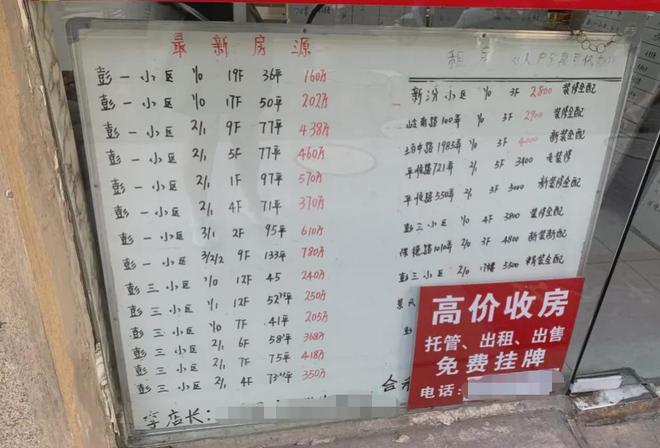 最新房源
彭一小区 1/0 19F 36平 160万
彭一小区 1/0 17F 50平 202万
彭一小区 2/1 9F 77平 438万
彭一小区 2/1 5F 77平 460万
彭一小区 2/1 1F 97平 570万
彭一小区 2/1 4F 71平 370万
彭一小区 3/1 2F 95平 610万
彭一小区 3/2/2 9F 133平 780万
彭三小区 1/0 12F 45 240万
彭三小区 1/1 12F 52平 250万
彭三小区 1/0 7F 41平 205万
彭三小区 2/1 6F 58平 368万
彭三小区 2/1 7F 75平 418万
彭三小区 2/1 4F 73平 350万
李店长:
租
小区 1/0 3F 2800 装修全配
100弄 1/0 3F 2900 装修全配
1983弄 3F 4000 新装全配
平顺路721弄 2/1 5F 3400
平顺路550弄 2/1 3F 3000 新装全配
彭三小区 1/0 4F 3800 装修全配
保德路1010弄 2/0 3F 4800 新装新配
彭三小区 2/0 5500 精装全配
彭
高价收房
托管、出租、出售
免费挂牌
电话: